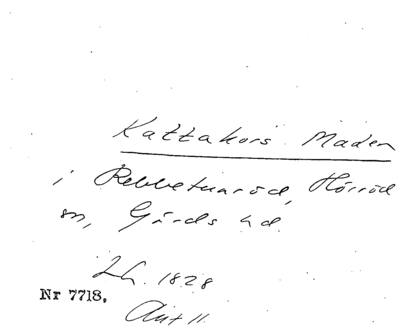 Kattakors Maden
i Rebbetuaröd, Hörröd
sn, Gärds hd.
Lh. 1828
Nr 7718.
Akt 11.